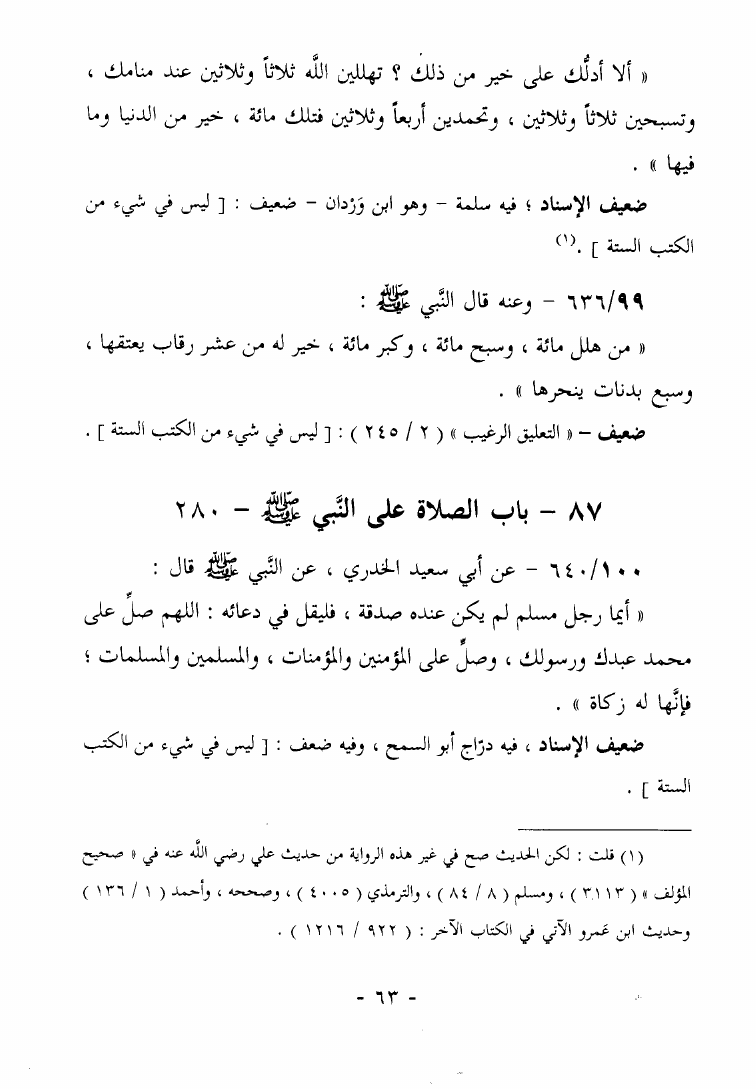 « ألا أدلُّك على خير من ذلك ؟ تهللين اللَّه ثلاثاً وثلاثين عند منامك ،
وتسبحين ثلاثاً وثلاثين ، وتحمدين أربعاً وثلاثين فتلك مائة ، خير من الدنيا وما
فيها » .
ضعيف الإسناد ؛ فيه سلمة – وهو ابن وَرْدان – ضعيف : [ ليس في شيء من
الكتب الستة ] .(١)
٦٣٦/٩٩ – وعنه قال النَّبي ﷺ :
« من هلل مائة ، وسبح مائة ، وكبر مائة ، خير له من عشر رقاب يعتقها ،
وسبع بدنات ينحرها » .
ضعيف – « التعليق الرغيب » ( ٢ / ٢٤٥ ) : [ ليس في شيء من الكتب الستة ] .
٨٧ – باب الصلاة على النَّبي ﷺ – ٢٨٠
٦٤٠/١٠٠ – عن أبي سعيد الخدري ، عن النَّبي ﷺ قال :
« أيما رجل مسلم لم يكن عنده صدقة ، فليقل في دعائه : اللهم صلِّ على
محمد عبدك ورسولك ، وصلِّ على المؤمنين والمؤمنات ، والمسلمين والمسلمات ؛
فإنَّها له زكاة » .
ضعيف الإسناد ، فيه درّاج أبو السمح ، وفيه ضعف : [ ليس في شيء من الكتب
الستة ] .
(١) قلت : لكن الحديث صح في غير هذه الرواية من حديث علي رضي اللَّه عنه في « صحيح
المؤلف » ( ٣١١٣ ) ، ومسلم ( ٨ / ٨٤ ) ، والترمذي ( ٤٠٠٥ ) ، وصححه ، وأحمد ( ١ / ١٣٦ )
وحديث ابن عَمرو الآتي في الكتاب الآخر : ( ٩٢٢ / ١٢١٦ ) .
- ٦٣ -